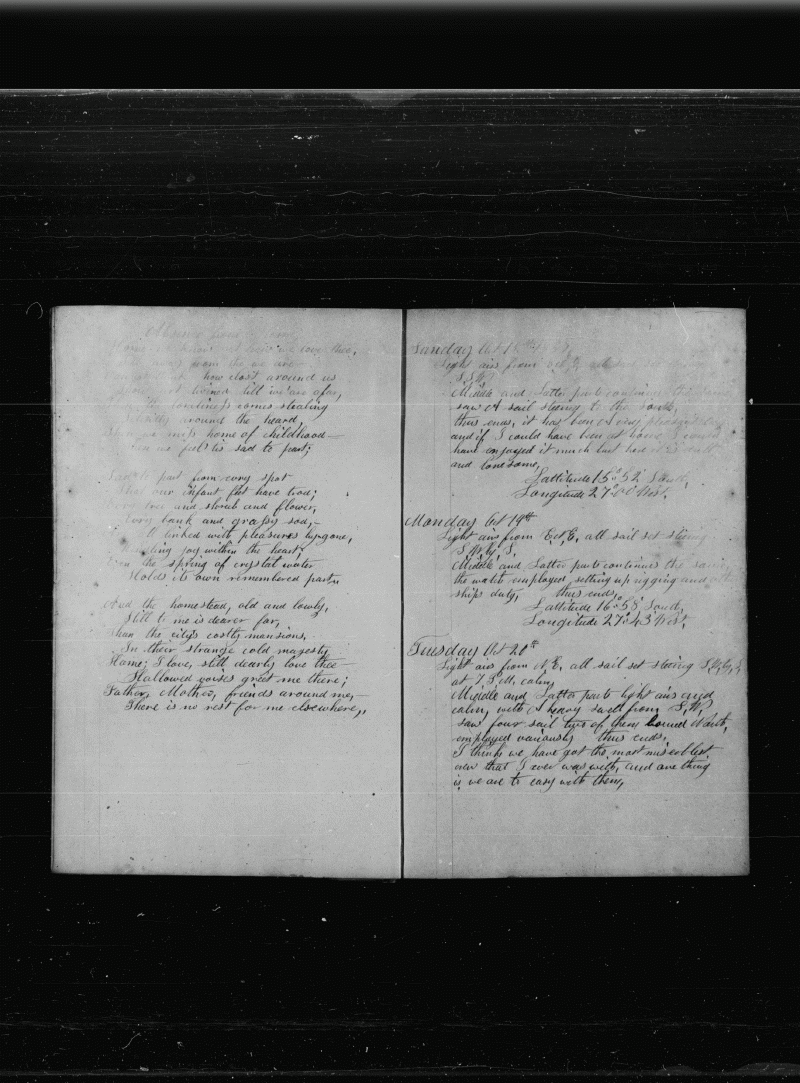 Absence from Home
we love thee,
from the we are
how close around us
till we are afar,
loneliness comes stealing
around the heard,
home of childhood—
we feel tis sad to part;
Sad to part from evry spot
That our infant feet have trod;
Evry tree and shrub and flower,
Evry bank and grassy sod,—
linked with pleasures bygone,
joy within the heart;
Even the spring of crystal water
Holds its own remembered part,
And the homestead, old and lowly,
Still to me is dearer far,
Than the citys costly mansions,
In their strange cold majesty
Home; I love, still dearly love thee—
Hallowed voises greet me there;
Father, Mother, friends around me,—
There is no rest for me elsewhere,,
Sunday Oct 18th
Light airs from all
S.S.W.
Middle and Latter parts continues the
saw a sail steering to the South,
thus ends, it has been a very pleasant
and if I could have been at home I
have enjoyed it much but had
and lonesome,
Lattitude 15° 52' South,
Longitude 27° 00' West,
Monday Oct 19th
Light airs from E.N.E. all sail set steering
S.W.by.S.
Middle and Latter parts continues the same
the watch employed, setting up rigging and
ships duty, thus ends,
Lattitude 16° 58' South,
Longitude 27° 43' West,
Tuesday Oct 20th
Light airs from N.E. all sail set steering S.W.by.S,
at 7 P.M. calm,
Middle and Latter parts light airs and
calm, with a heavy swell from S.W.
saw four sail two of them bound North,
employed variously thus ends,
I think we have got the most miserblest
crew that I ever was with, and one thing
is we are to easy with them,